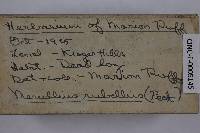 Herbarium of Marion Ruff
Oct - 1925
Local - Kroger Hills
Habit. - Dead log
Det + Colo. - Marion Ruff
Merulius rubellus (Peck
CINC-F-0005145